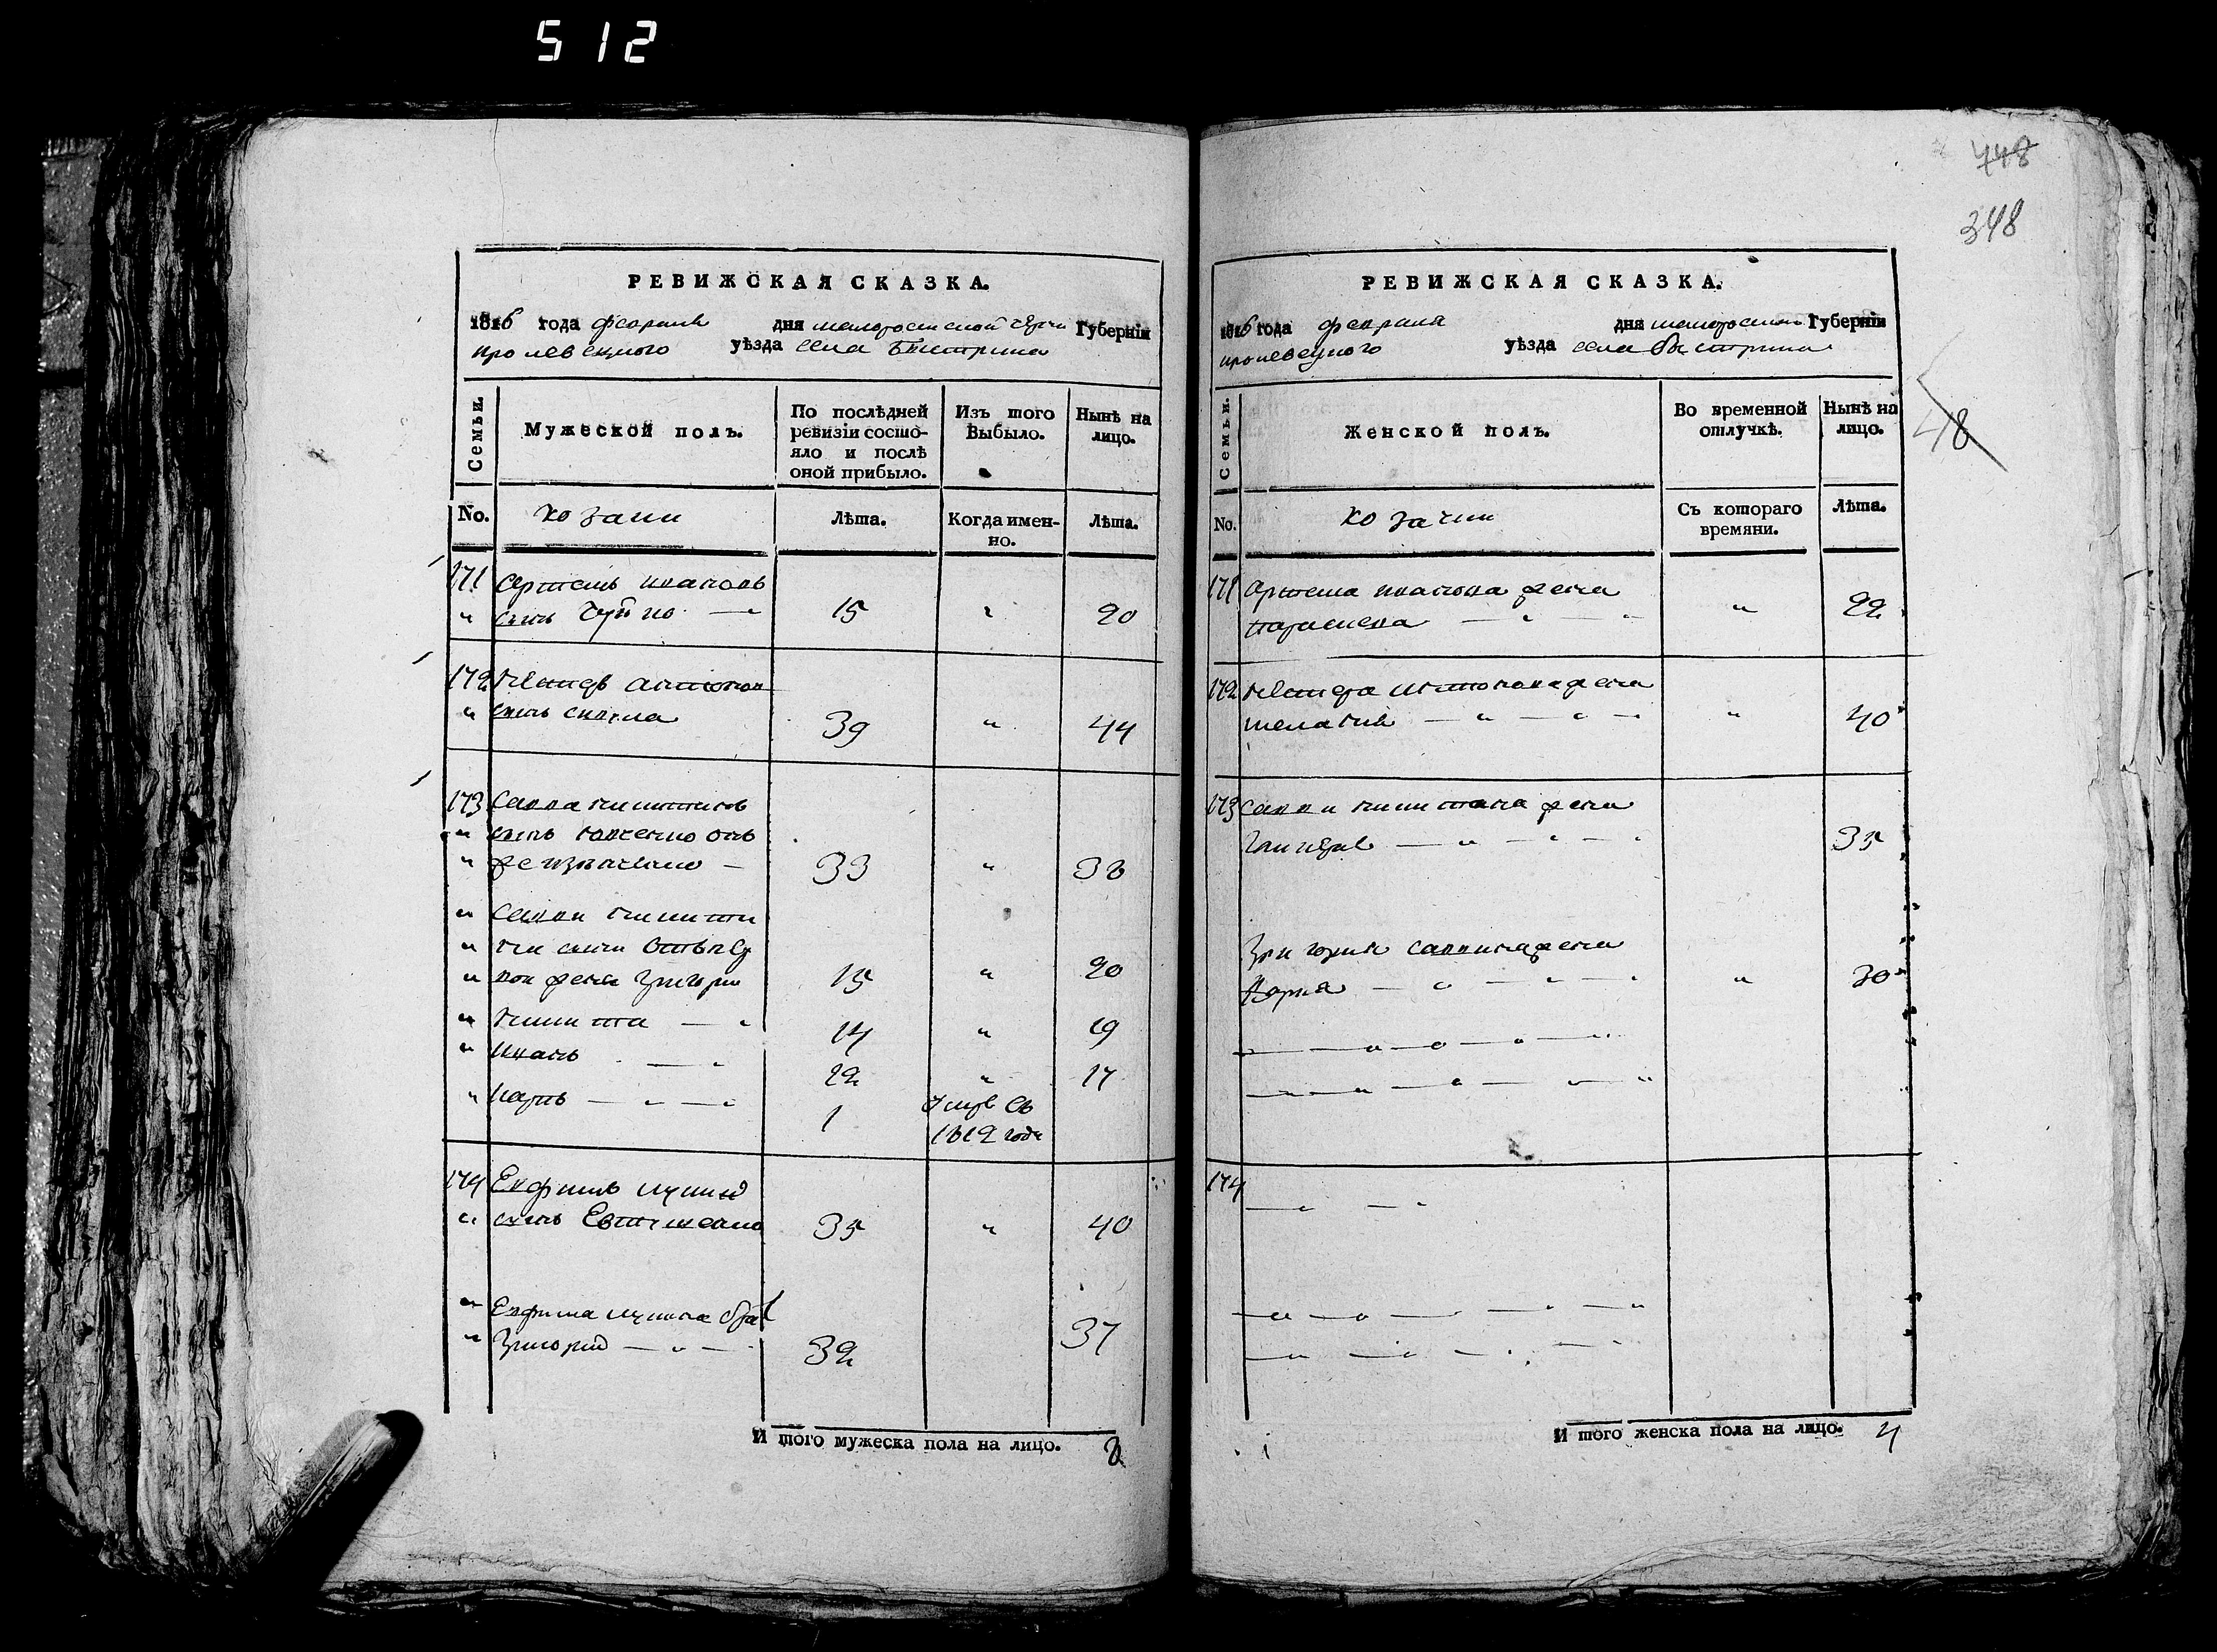 512
РЕВИЖСКАЯ СКАЗКА.
1816 года февраля дня малоросийской черн Губерніи
кролевецкого уѣзда села Быстрика
Семьи.
Мужеской полъ.
По послѣдней ревизіи состояло и послѣ оной прибыло.
Изъ того Выбыло.
Нынѣ на лицо.
No.
козаки
Лѣта.
Когда именно.
Лѣта.
171 Артемъ ивановъ
" сынъ Чуйко 15 " 20
172 Петръ антонов
" сынъ 39 " 44
173 Савва никитинъ
" сынъ
" 33 " 38
" саввы никити
" на сыны отъ пер
" вой жены григори 15 " 20
" никита 14 " 19
" иванъ 12 " 17
" карпъ 1 умре въ
1812 годе
174 Евфимъ лукинъ
" сынъ Евтушенко 35 " 40
" Евфима лукина брат
" григорий 32 37
И того мужеска пола на лицо. 8
448
348
РЕВИЖСКАЯ СКАЗКА.
1816 года февраля дня малоросийской Губерніи
кролевецкого уѣзда села быстрика
48
Семьи.
Женской полъ.
Во временной отлучкѣ.
Нынѣ на лицо.
No.
козачки
Съ котораго времяни.
Лѣта.
171 Артема иванова жена
параскева " 22
172 петра антонова жена
пелагия " 40
173 саввы никитина жена
35
григория саввина жена
Мария " 30
174
И того женска пола на лицо. 4